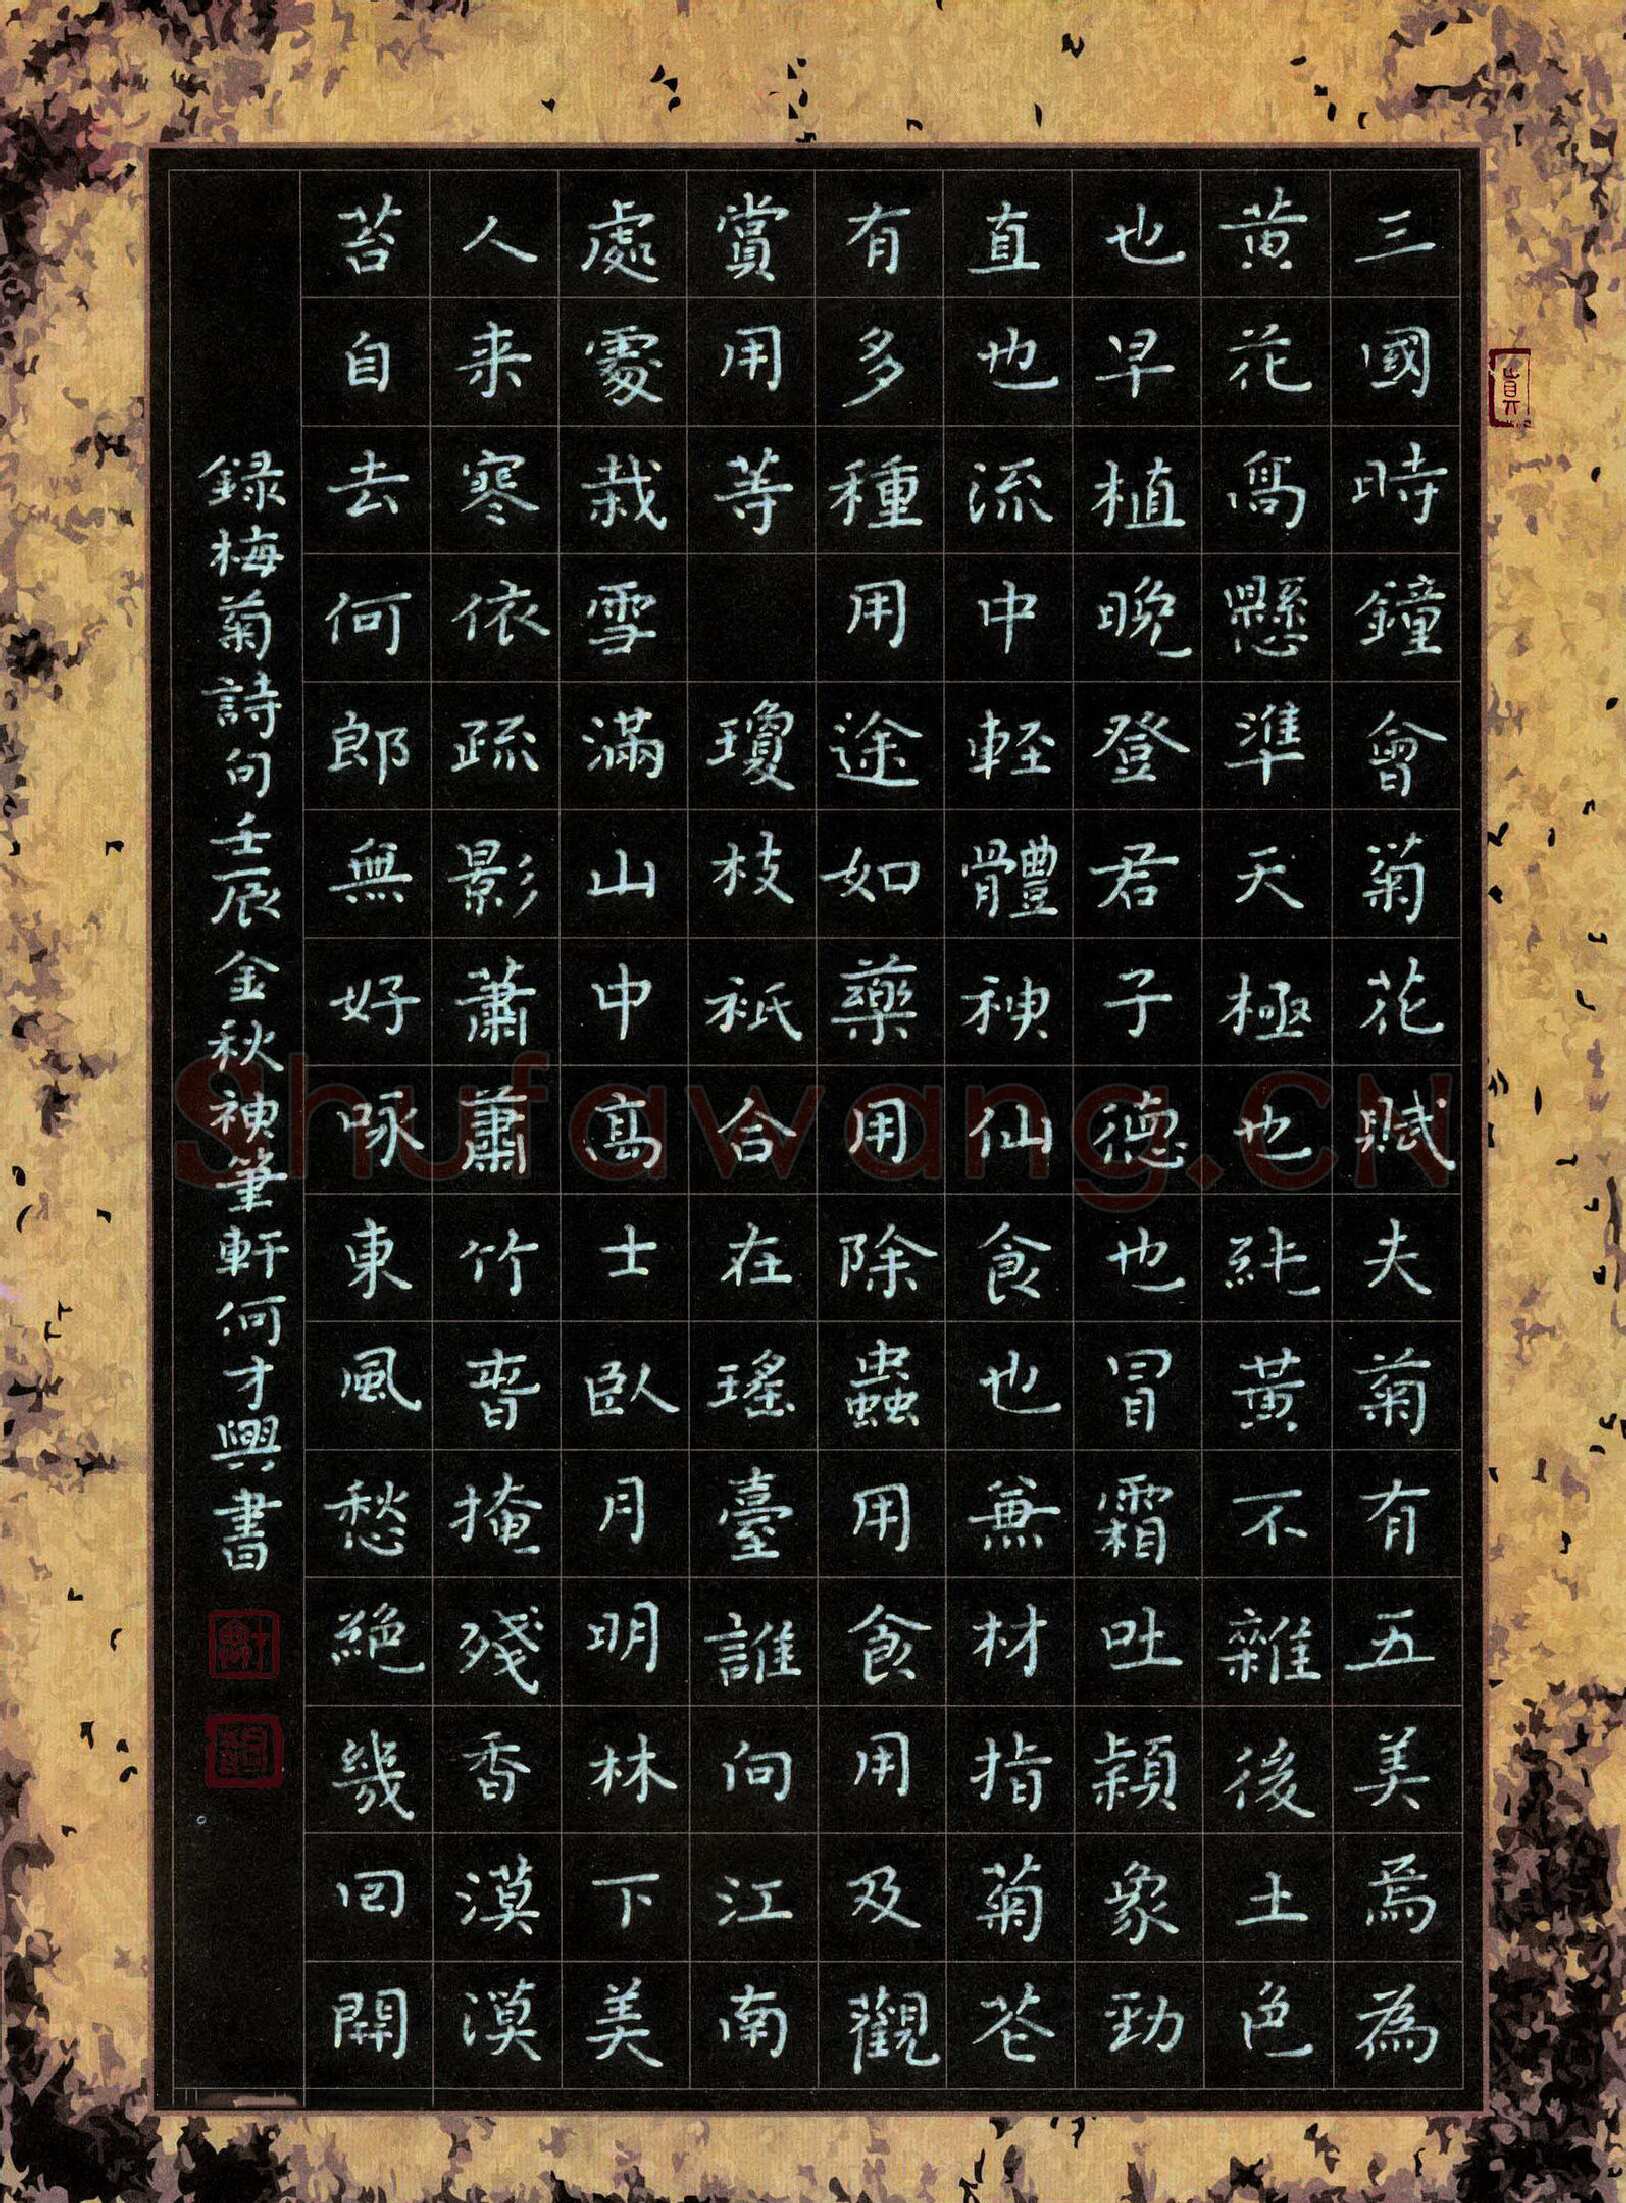 三國時鐘會菊花賦夫菊有五美焉為
黄花高懸準天極也純黄不雜後土色
也早植晚登君子德也冒霜吐穎象勁
直也流中軽體神仙食也兼材指菊花
有多種用途如藥用除蟲用食用及觀
賞用等 瓊枝祇合在瑤臺誰向江南
處處栽雪滿山中高士臥月明林下美
人来寒依疏影蕭蕭竹春掩殘香漠漠
苔自去何郎無好咏東風愁絕幾回開
録梅菊詩句壬辰金秋神筆軒何才興書
Shufawang.CN